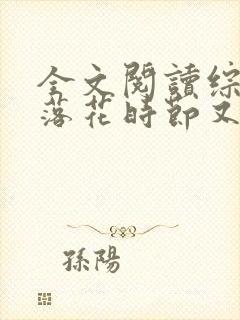 全文閱讀綜
落花時節又
孫陽